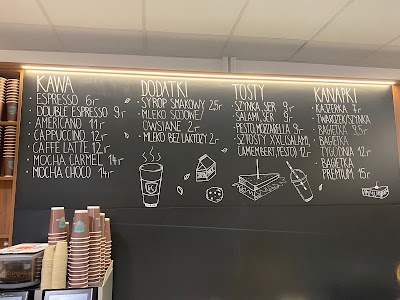 KAWA
ESPRESSO 6zł
DOUBLE ESPRESSO 9zł
AMERICANO 11zł
CAPPUCCINO 12zł
CAFFE LATTE 12zł
MOCHA CARMEL 14zł
MOCHA CHOCO 14zł
DODATKI
SYROP SMAKOWY 2,5zł
MLEKO SOJOWE/
OWSIANE 2zł
MLEKO BEZ LAKTOZY 2zł
TOSTY
SZYNKA, SER 9zł
SALAMI, SER 9zł
PESTO, MOZZARELLA 9zł
SZTOSTY XXL (SALAMI,
CAMEMBERT, PESTO) 12zł
KANAPKI
KAJZERKA 7zł
TWAROŻEK/SZYNKA
BAGIETKA 9,5zł
BAGIETKA
TYGODNIA 12zł
BAGIETKA
PREMIUM 15zł